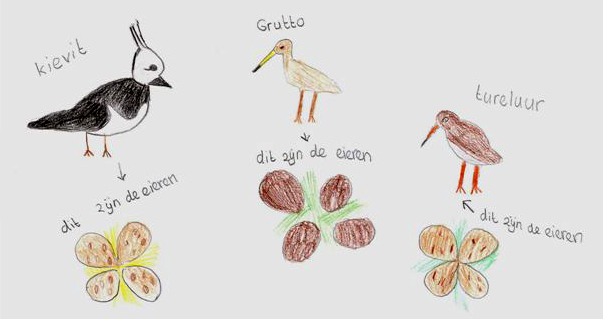 kievit
dit zijn de eieren
Grutto
dit zijn de eieren
tureluur
dit zijn de eieren